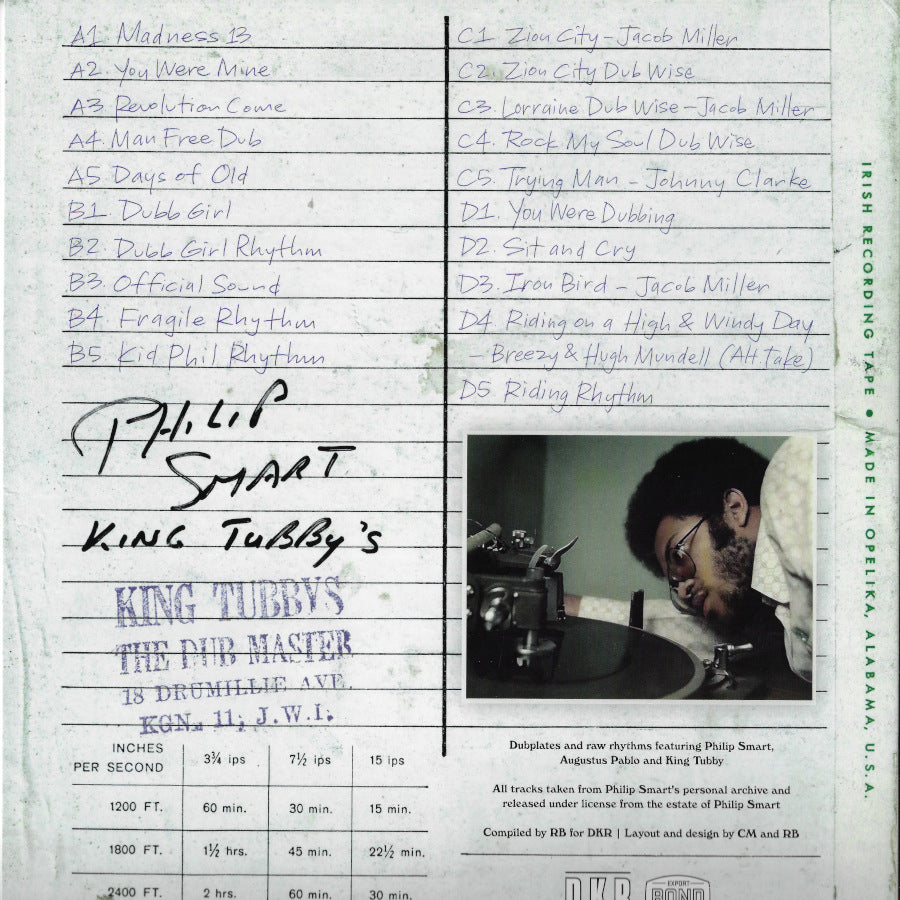 A1. Madness 13
A2. You Were Mine
A3. Revolution Come
A4. Man Free Dub
A5. Days of Old
B1. Dubb Girl
B2. Dubb Girl Rhythm
B3. Official Sound
B4. Fragile Rhythm
B5. Kid Phil Rhythm
C1. Zion City - Jacob Miller
C2. Zion City Dub Wise
C3. Lorraine Dub Wise - Jacob Miller
C4. Rock My Soul Dub Wise
C5. Trying Man - Johnny Clarke
D1. You Were Dubbing
D2. Sit and Cry
D3. Iron Bird - Jacob Miller
D4 Riding on a High & Windy Day
- Breezy & Hugh Mundell (Alt. Take)
D5 Riding Rhythm
PHILIP
SMART
KING TUBBY'S
KING TUBBYS
THE DUB MASTER
18 DRUMILLIE AVE.
KGN. 11, J.W.I.
INCHES
PER SECOND
3¾ ips 7½ ips 15 ips
1200 FT. 60 min. 30 min. 15 min.
1800 FT. 1½ hrs. 45 min. 22½ min.
2400 FT. 2 hrs. 60 min. 30 min.
Dubplates and raw rhythms featuring Philip Smart,
Augustus Pablo and King Tubby
All tracks taken from Philip Smart's personal archive and
released under license from the estate of Philip Smart
Compiled by RB for DKR | Layout and design by CM and RB
DKR
EXPORT
BOND
IRISH RECORDING TAPE • MADE IN OPELIKA, ALABAMA, U.S.A.